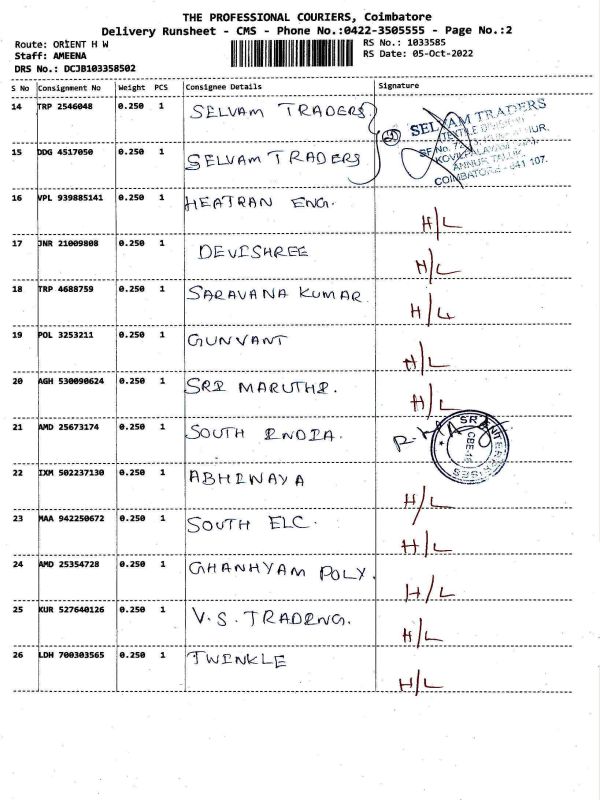 THE PROFESSIONAL COURIERS, Coimbatore
Delivery Runsheet - CMS - Phone No.:0422-3505555 - Page No.:2
Route: ORIENT H W
Staff: AMEENA
DRS No.: DCJB103358502
RS No.: 1033585
RS Date: 05-Oct-2022
S No Consignment No Weight PCS Consignee Details Signature
14 TRP 2546048 0.250 1 SELVAM TRADERS
SELVAM TRADERS
TEXTILE DIVISION
KOVILPALAYAM
ANNUR TALUK
COIMBATORE - 641 107.
15 DDG 4517050 0.250 1 SELVAM TRADERS
16 VPL 939885141 0.250 1 HEATRAN ENG. H/L
17 JNR 21009808 0.250 1 DEVISHREE H/L
18 TRP 4688759 0.250 1 SARAVANA KUMAR H/L
19 POL 3253211 0.250 1 GUNVANT H/L
20 AGH 530090624 0.250 1 SRI MARUTHI. H/L
21 AMD 25673174 0.250 1 SOUTH INDIA.
22 IXM 502237130 0.250 1 ABHINAYA H/L
23 MAA 942250672 0.250 1 SOUTH ELC. H/L
24 AMD 25354728 0.250 1 GHANHYAM POLY. H/L
25 KUR 527640126 0.250 1 V.S. TRADING. H/L
26 LDH 700303565 0.250 1 TWINKLE H/L